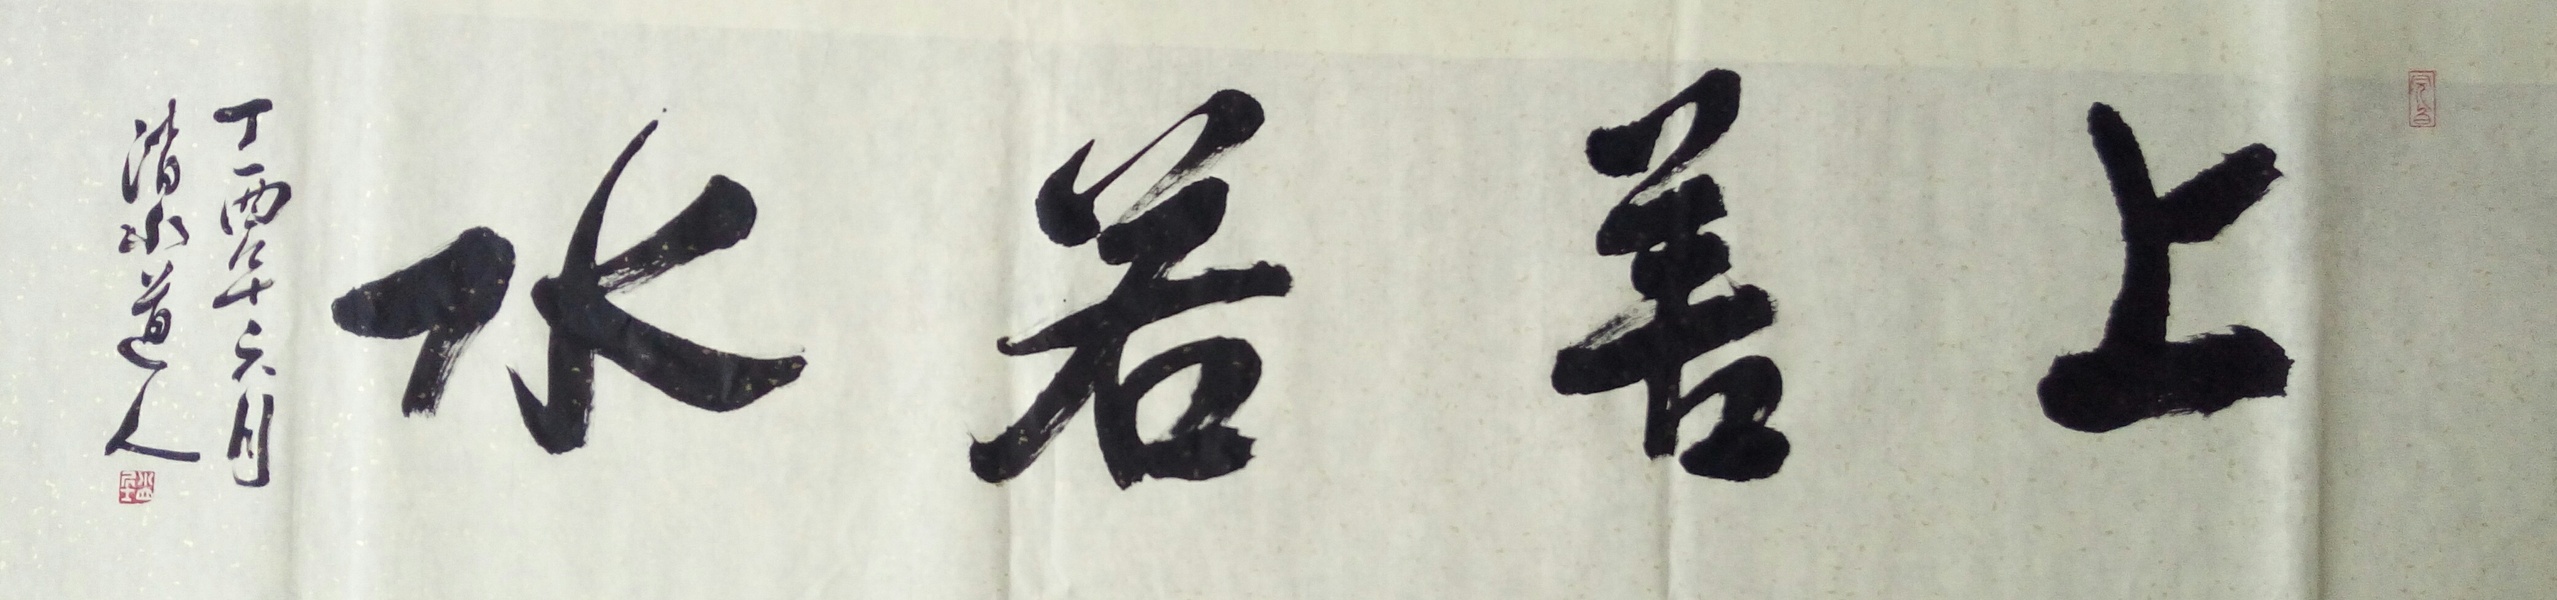 上善若水
丁酉年六月
清水道人